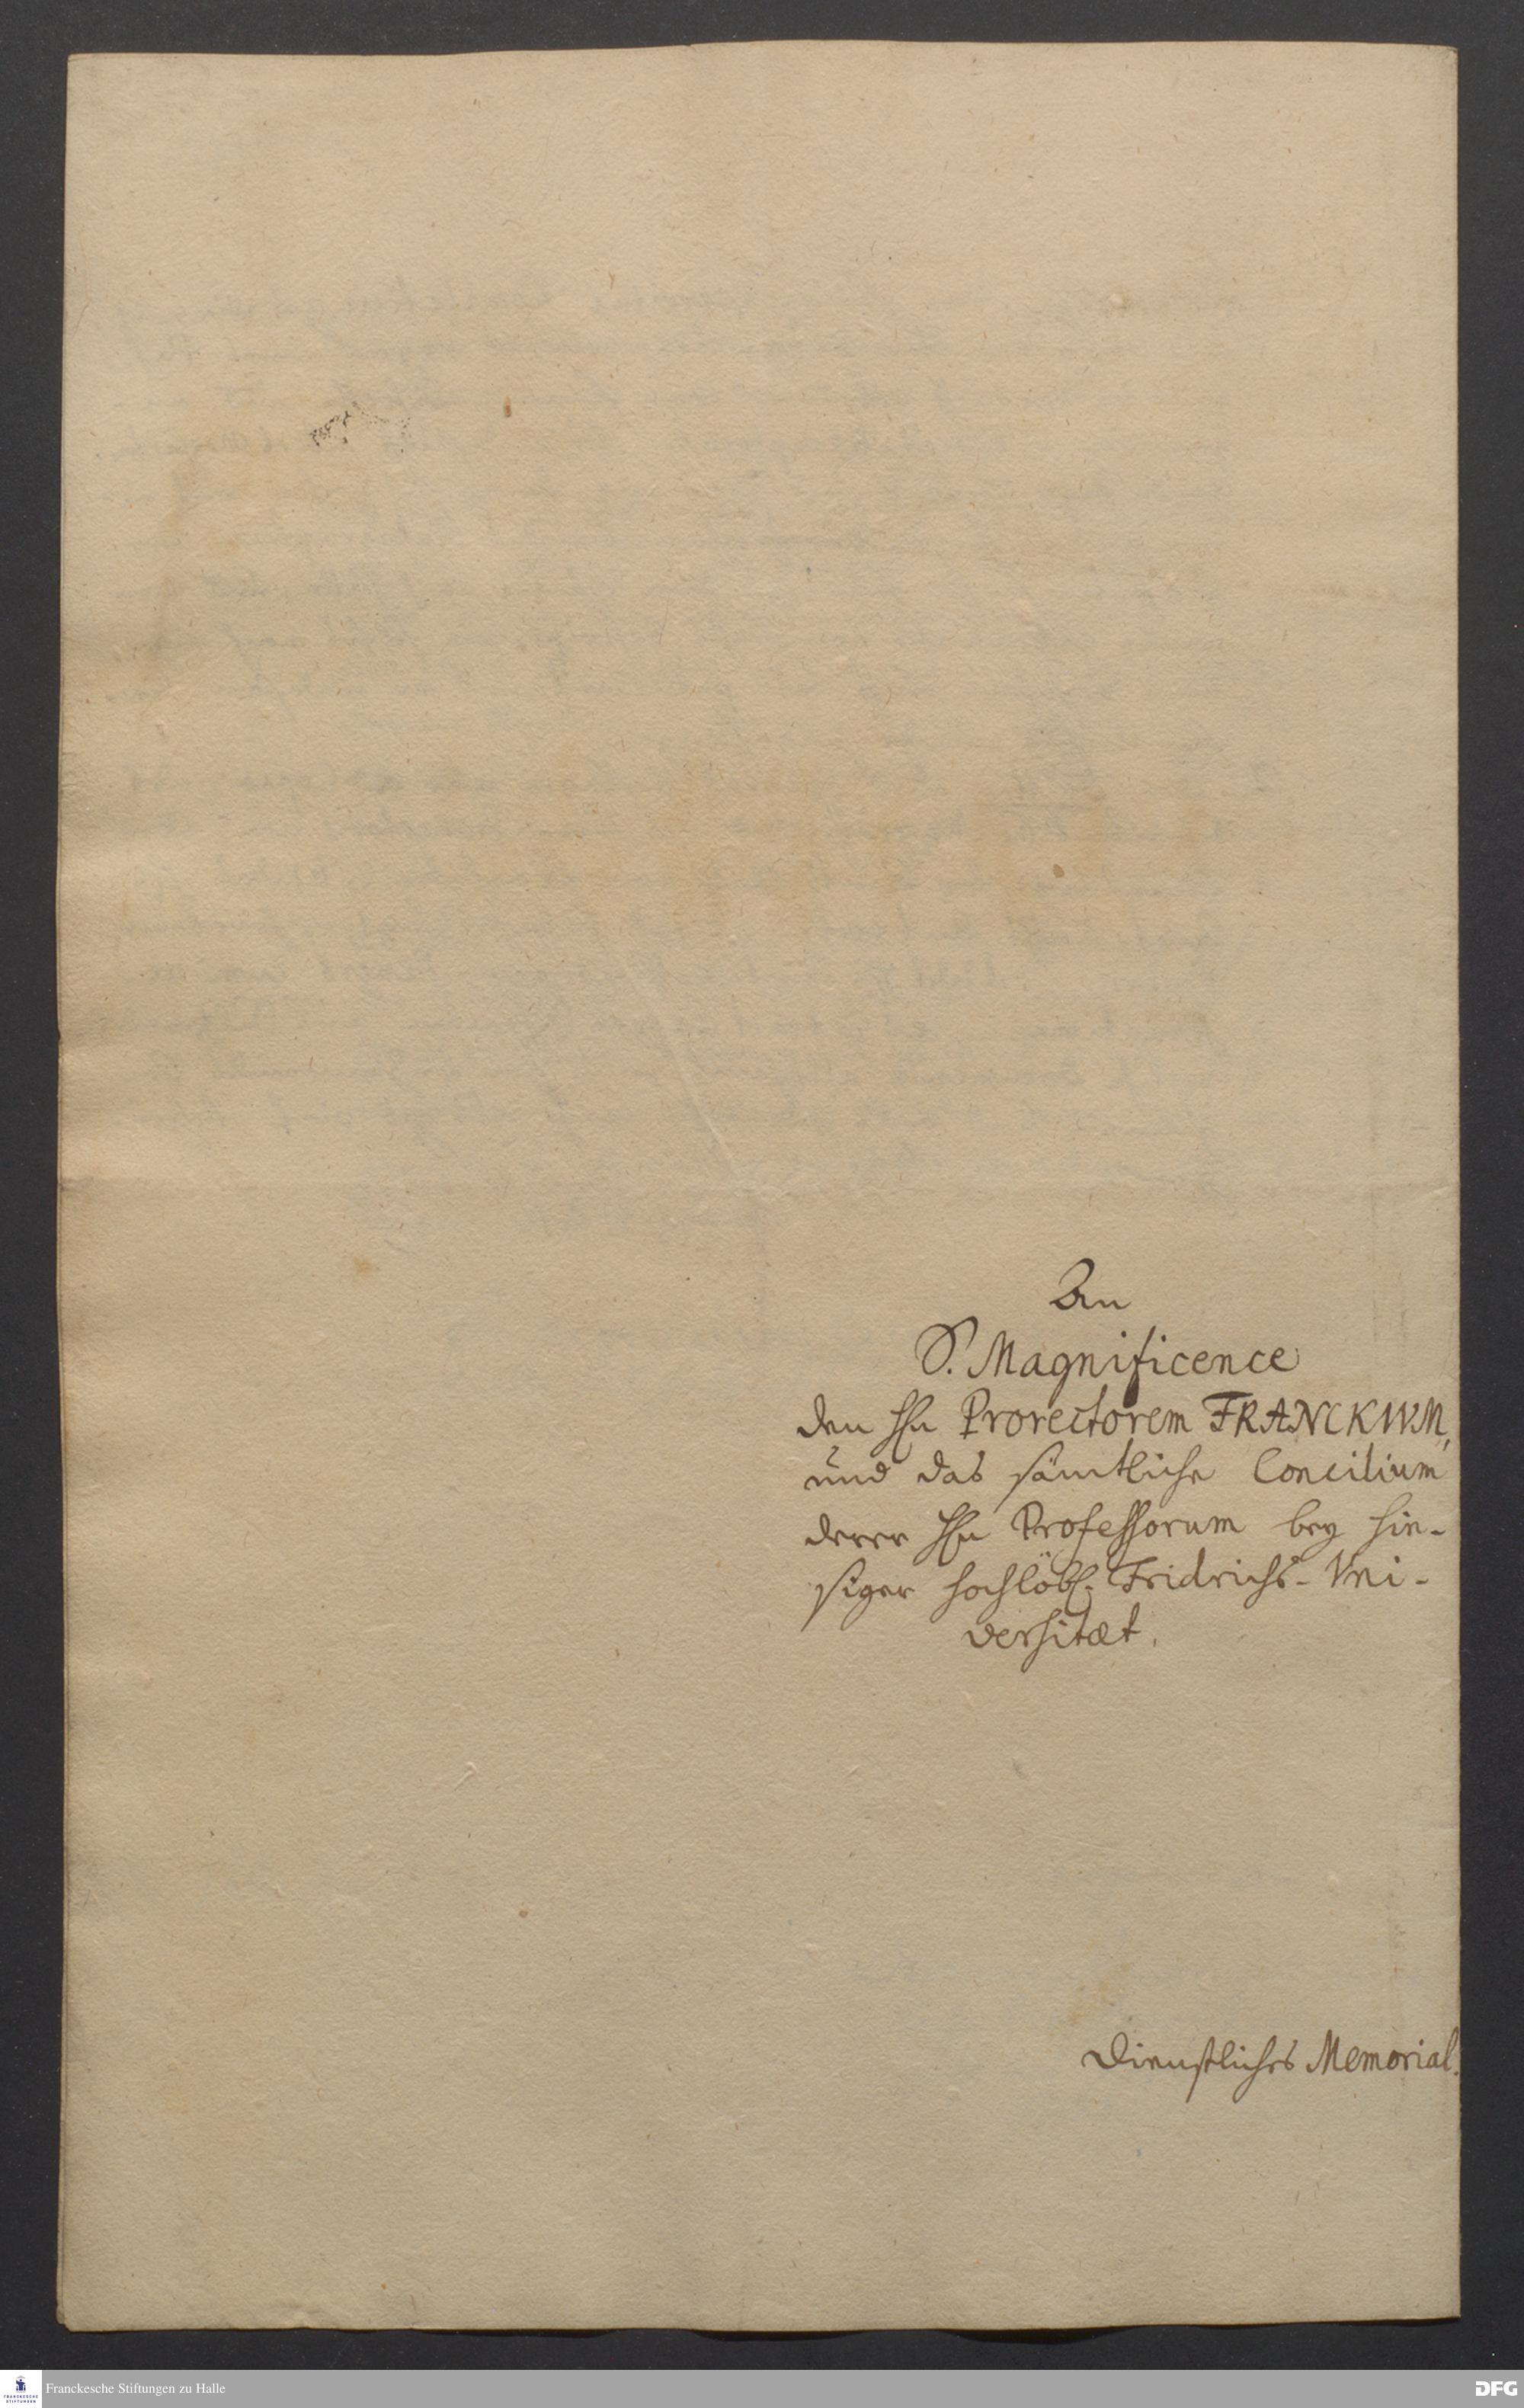 An
S. Magnificence
den Hn Prorectorem FRANCKIVM,
und das sämtliche Concilium
derer Hn Professorum bey hie-
siger hochlöbl. Fridrichs-Vni-
versitæt.
Dienstliches Memorial.
Franckesche Stiftungen zu Halle
FRANCKESCHE
STIFTUNGEN
DFG